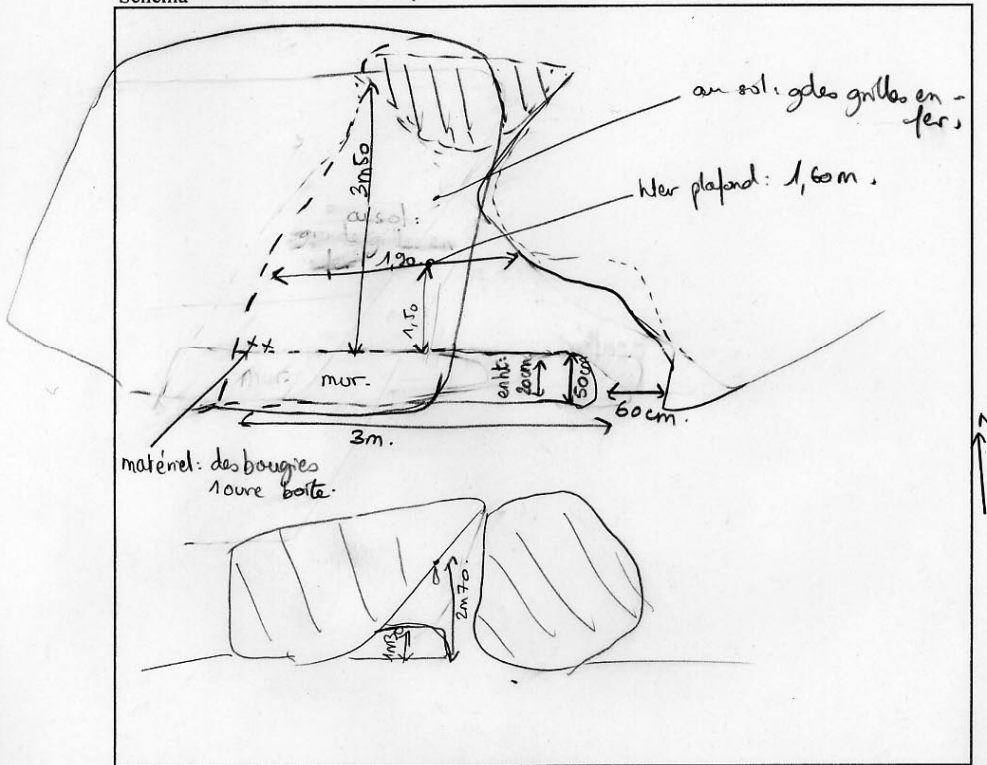 Schéma
au sol: gdes grilles en
fer.
hter plafond: 1,60m.
3m50
au sol:
1,90
1,50
mur.
en ht:
20cm
50cm
60cm.
3m.
matériel: des bougies
1 ouvre boîte.
2m70.
1m30